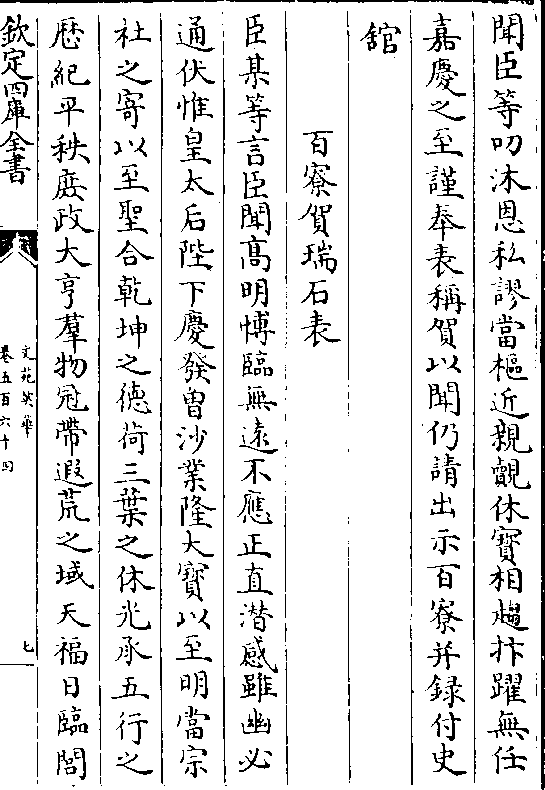 聞臣等叨沐恩私謬當樞近親覿休寶相趨抃躍無任
嘉慶之至謹奉表稱賀以聞仍請出示百寮并録付史
舘
百寮賀瑞石表
臣某等言臣聞高明愽臨無逺不應正直潜感雖幽必
通伏惟皇太后陛下慶發曽沙業隆大寳以至明當宗
社之寄以至聖合乾坤之徳荷三葉之休光承五行之
厯紀平秩庻政大亨羣物冠帶遐荒之域天福日臨閤
欽定四庫全書
文苑英華
卷五百六十四
七